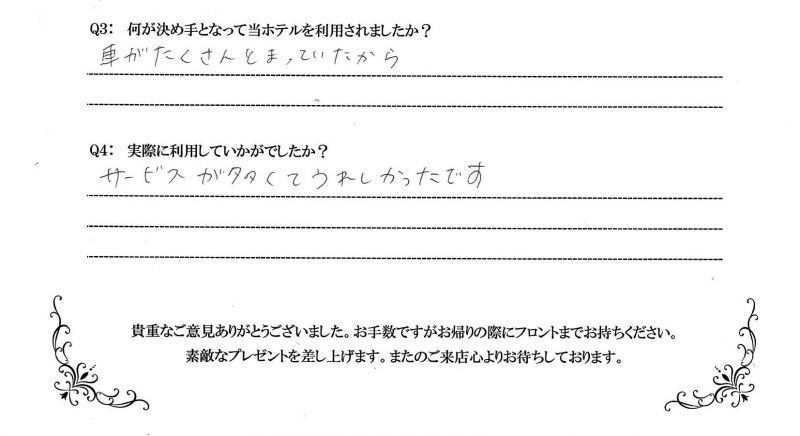 Q3: 何が決め手となって当ホテルを利用されましたか?
車がたくさんとまっていたから
Q4: 実際に利用していかがでしたか?
サービスが多くてうれしかったです
貴重なご意見ありがとうございました。お手数ですがお帰りの際にフロントまでお持ちください。
素敵なプレゼントを差し上げます。またのご来店心よりお待ちしております。